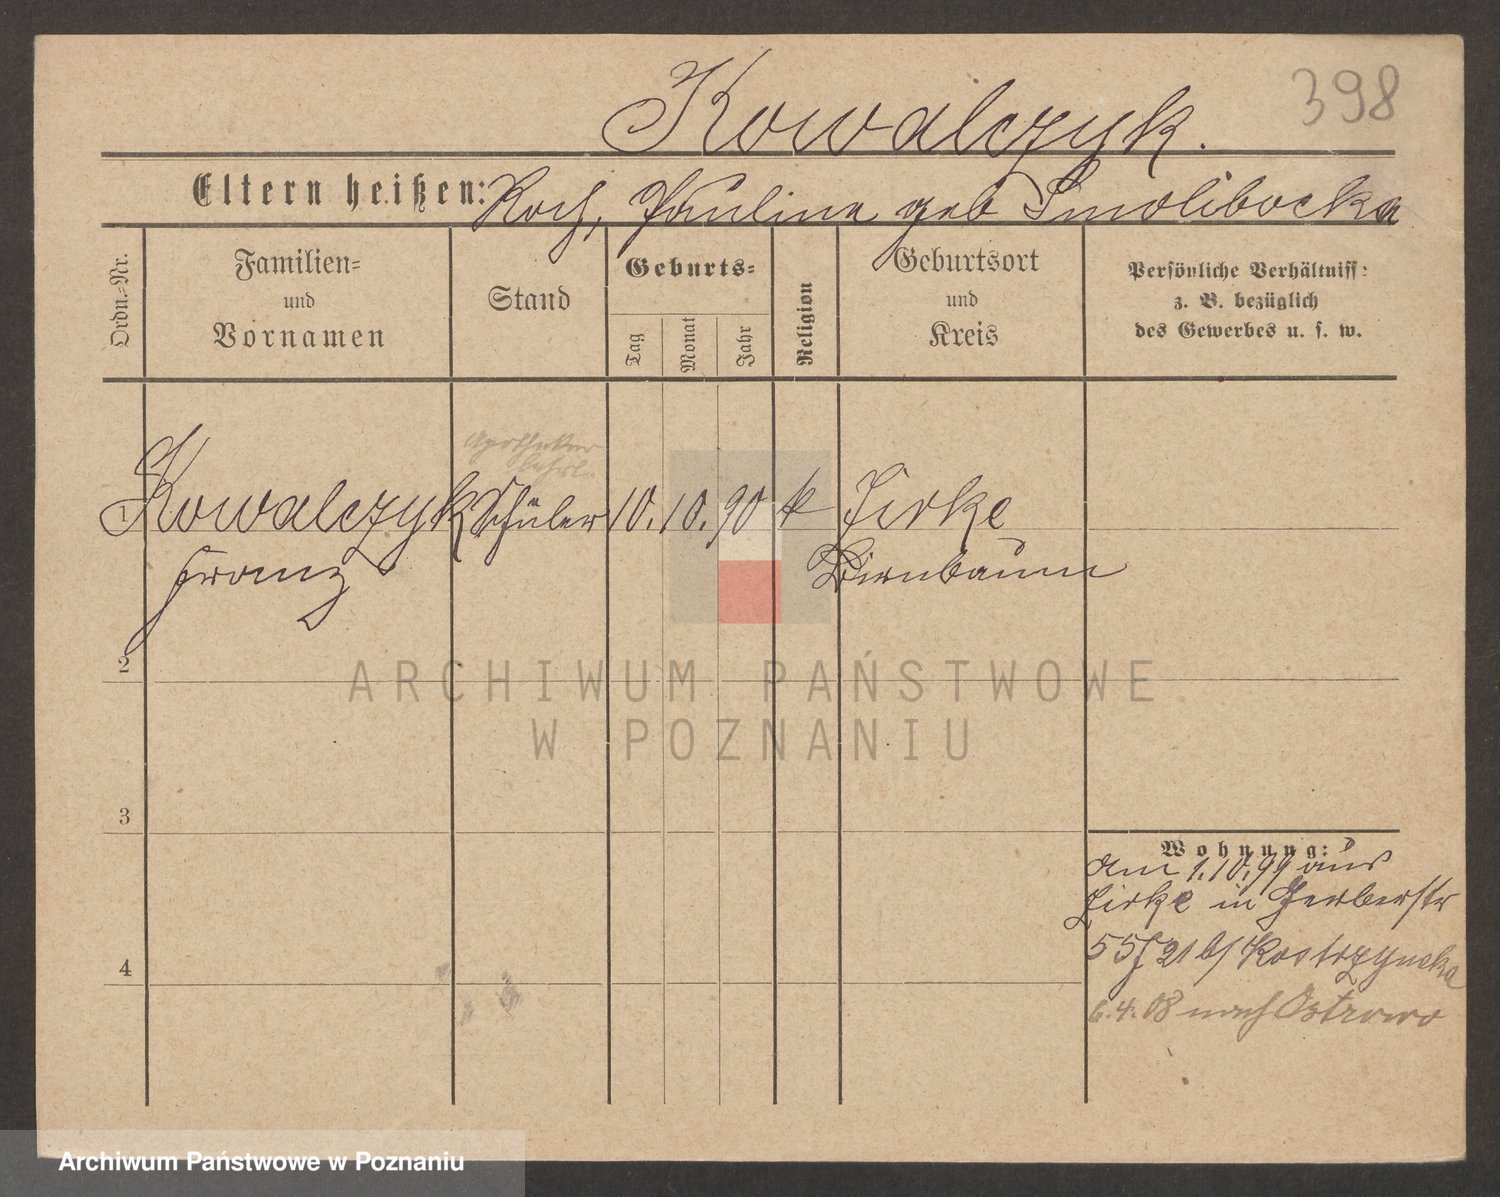 398
Kowalczyk.
Eltern heißen: Roch, Pauline geb Smolibocka
Ordn.-Nr.
Familien-
und
Vornamen
Stand
Geburts-
Tag
Monat
Jahr
Religion
Geburtsort
und
Kreis
Persönliche Verhältniss:
z. B. bezüglich
des Gewerbes u. s. w.
Apotheker
Lehrl.
1 Kowalczyk Schüler 10. 10. 90 k Zirke
Franz Birnbaum
2
3
4
Wohnung:
am 1.10.99 aus
Zirke in Gerberstr
55 21 b/ Kostrzynska
6.4.08 nach Ostrowo
ARCHIWUM PAŃSTWOWE
W POZNANIU
Archiwum Państwowe w Poznaniu